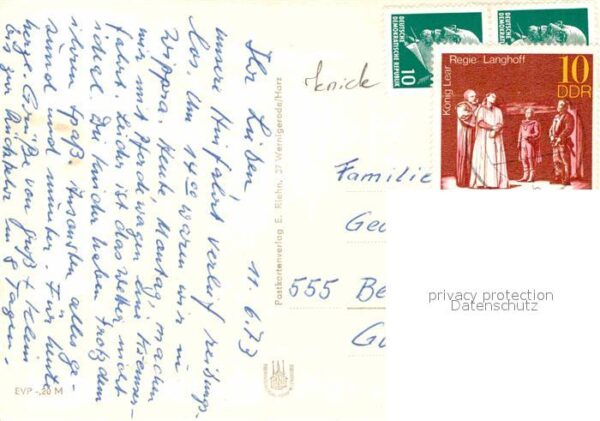 11.6.73
Ihr Lieben
unsere Hinfahrt verlief reibungs-
los. Um 14⁰⁰ waren wir in
Wippra. Heute, Montag, machen
wir mit Pferdewagen eine Kremser-
fahrt. Leider ist das Wetter nicht
ideal. Die Kinder haben trotzdem
ihren Spaß. Ansonsten alles ge-
sund und munter. Für heute
herzl. Grüße von Groß + Klein
bis zur Rückkehr in 8 Tagen.
EVP -,20 M
Postkartenverlag E. Riehn, 37 Wernigerode/Harz
Knick
DEUTSCHE
DEMOKRATISCHE REPUBLIK
10
DEUTSCHE
DEMOKRATISCHE
König Lear
Regie: Langhoff
10
DDR
Familie
555 Be
privacy protection
Datenschutz